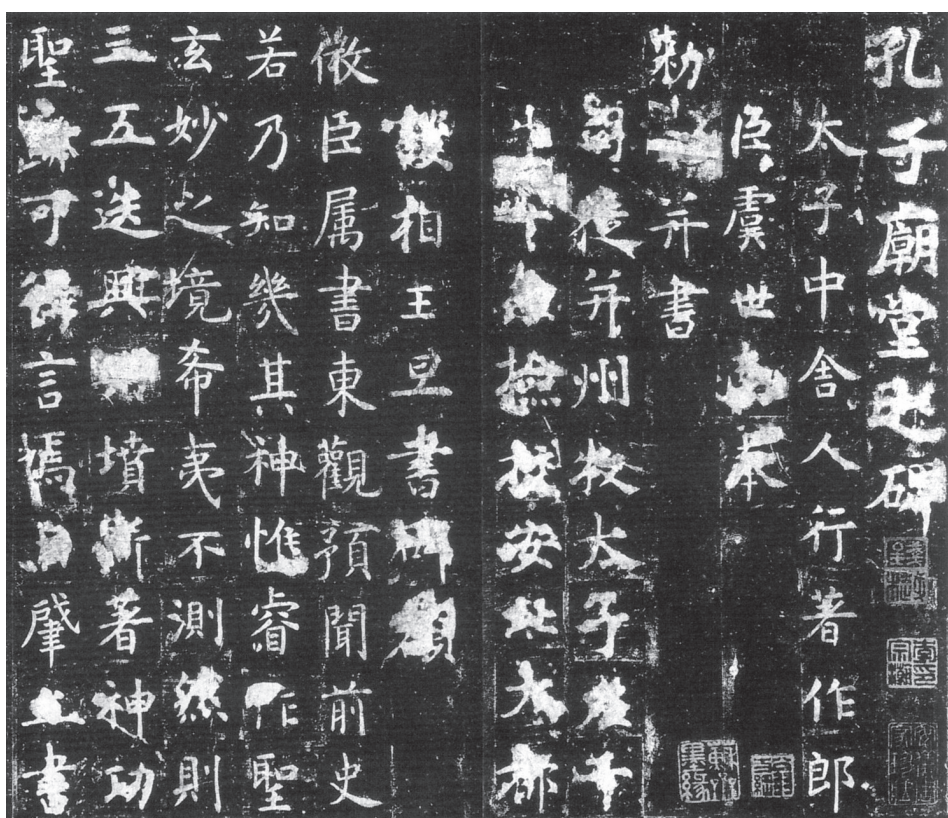 孔子廟堂之碑
太子中舍人行著作郎
臣虞世南奉
勅并書
司徒并州牧太子左千
牛撫挍安北大都
護相王旦書碑額
微臣属書東觀預聞前史
若乃知幾其神惟睿作聖
玄妙之境希夷不測然則
三五迭興墳斯著神功
聖跡可得言焉自肇立書